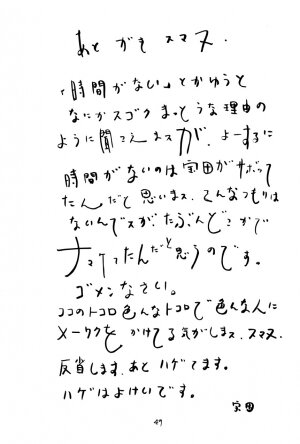 あと がき スマヌ.
「時間がない」とかゆうと
なにかスゴク まっとうな理由の
ように聞こえまスが、よーするに
時間がないのは宝田がサボって
たんだと思いまス. こんなつもりは
ないんでスが、たぶんどこかで
ナマケてたんだと思うのです。
ゴメンなさい。
ココのトコロ色んなトコロで色んな人に
メーワクを かけてる気がしまス. スマヌ.
反省します. あと ハゲてます。
ハゲはよけいです。
宝田
49